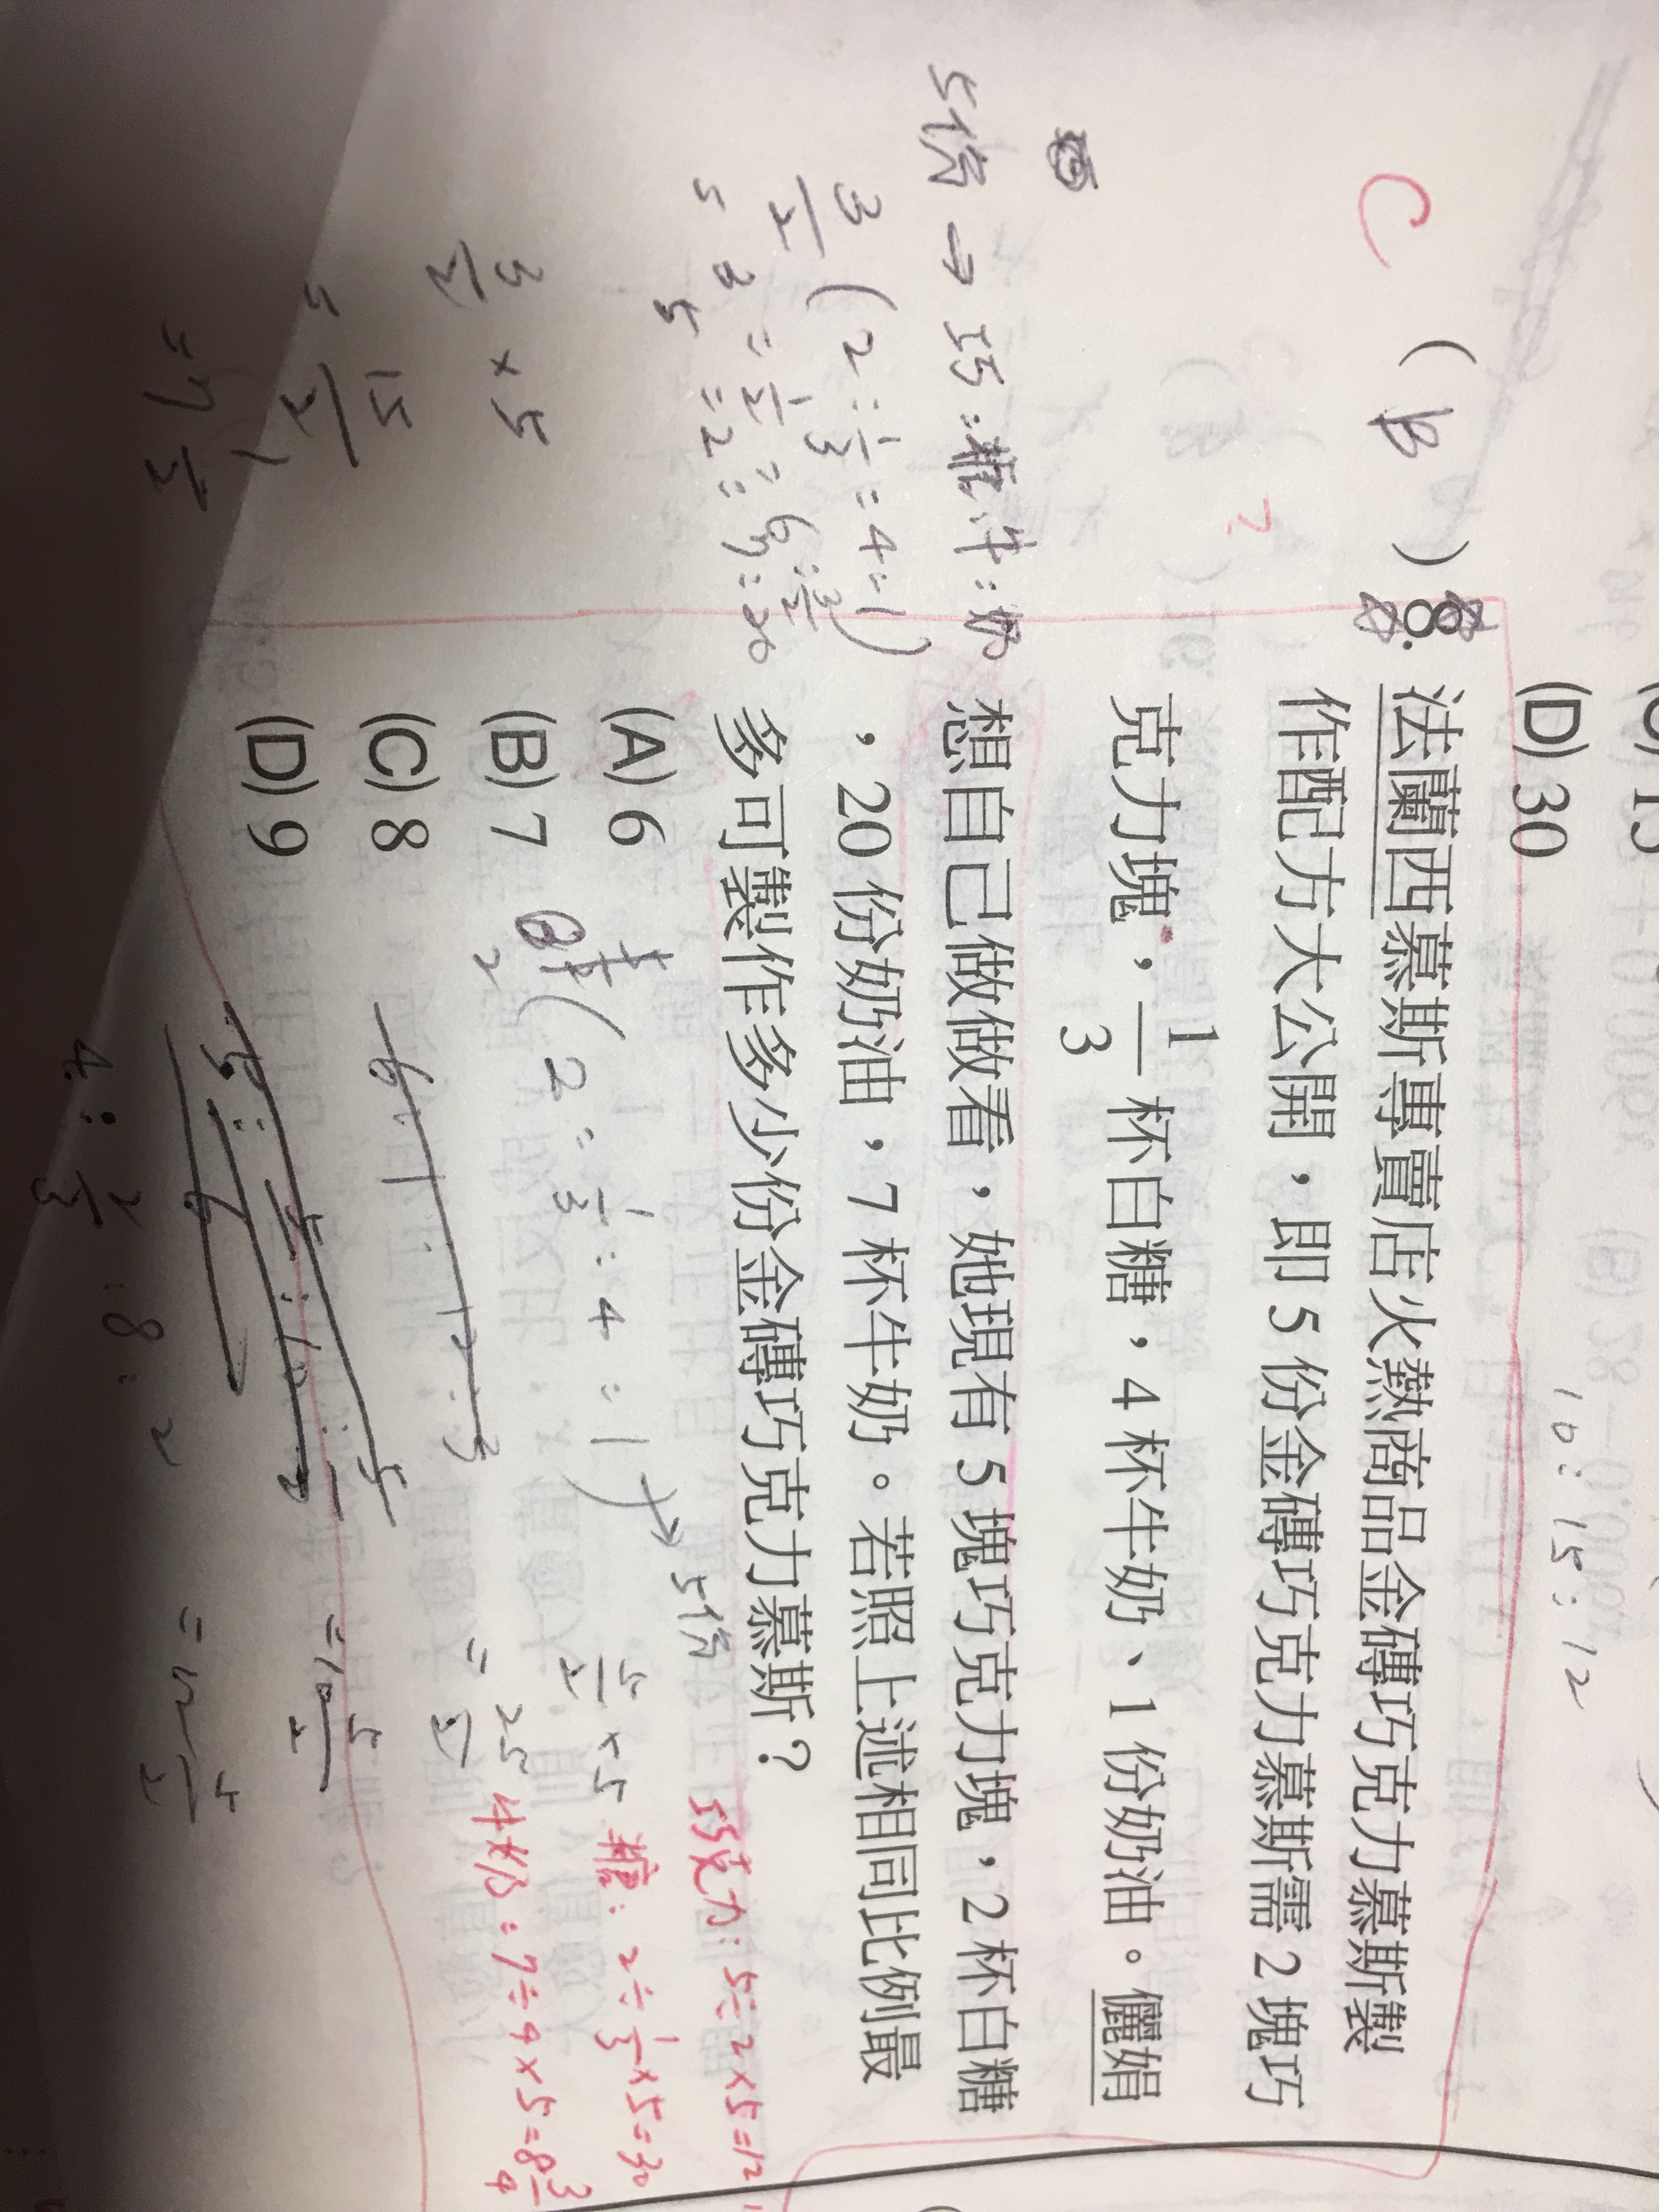 (D) 30
10:15:12
C
( B ) 8. 法蘭西慕斯專賣店火熱商品金磚巧克力慕斯製
作配方大公開，即 5 份金磚巧克力慕斯需 2 塊巧
克力塊，1/3 杯白糖，4 杯牛奶、1 份奶油。儷娟
想自己做做看，她現有 5 塊巧克力塊，2 杯白糖
，20 份奶油，7 杯牛奶。若照上述相同比例最
多可製作多少份金磚巧克力慕斯？
(A) 6
(B) 7
(C) 8
(D) 9
5份 → 巧:糖:牛:奶
3/2 (2:1/3=4=1)
3/2 × 5
15/2
(2=1/3:4=1) → 5份
5/2 ×5
= 25/2
巧克力:5÷2×5=12
糖:2÷1/3×5=30
牛奶:7÷4×5=8 3/4
4:2/3:8:2